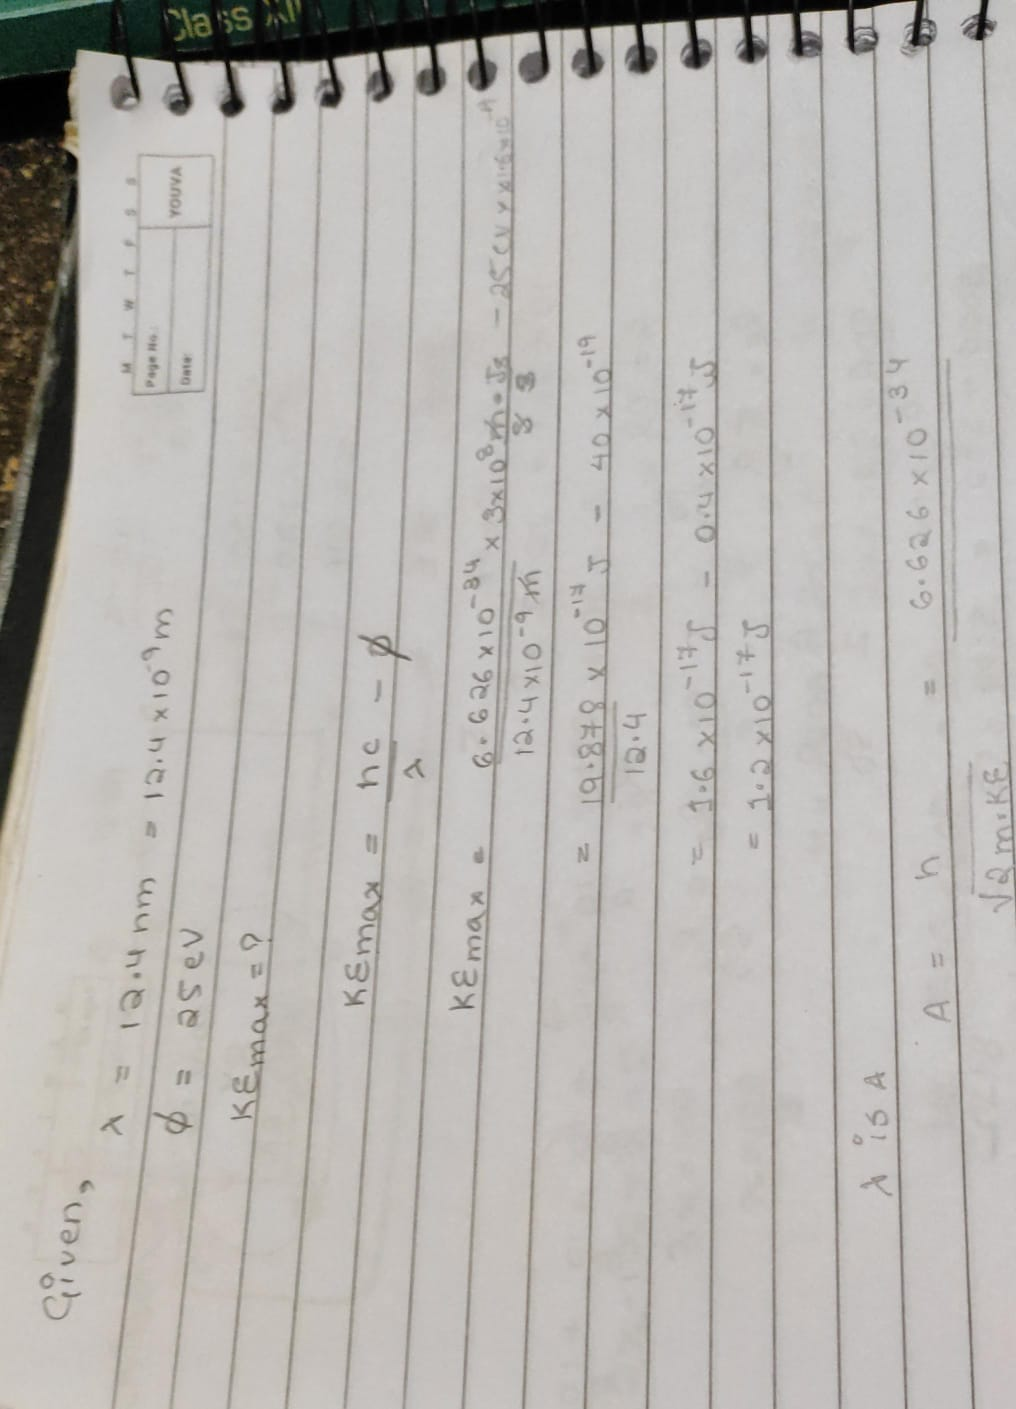 Class XII
M T W T F S S
Page No.:
Date:
YOUVA
Given,
λ = 12.4 nm = 12.4 x 10⁻⁹ m
ϕ = 25 eV
KEmax = ?
KEmax = hc/λ - ϕ
KEmax = 6.626 x 10⁻³⁴ x 3x10⁸ m·Js / 12.4 x10⁻⁹ m s - 25 eV x 1.6x10⁻¹⁹
= 19.878 x 10⁻¹⁷ J / 12.4 - 40 x 10⁻¹⁹
= 1.6 x10⁻¹⁷ J - 0.4 x10⁻¹⁷ J
= 1.2 x10⁻¹⁷ J
λ is A
A = h / √2m·KE = 6.626 x10⁻³⁴